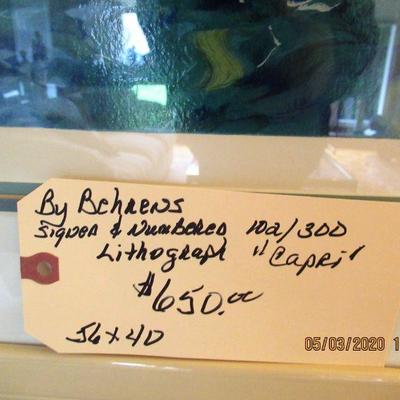 By Behrens
Signed & Numbered 102/300
Lithograph "Capri"
$650.00
56x40
05/03/2020 1